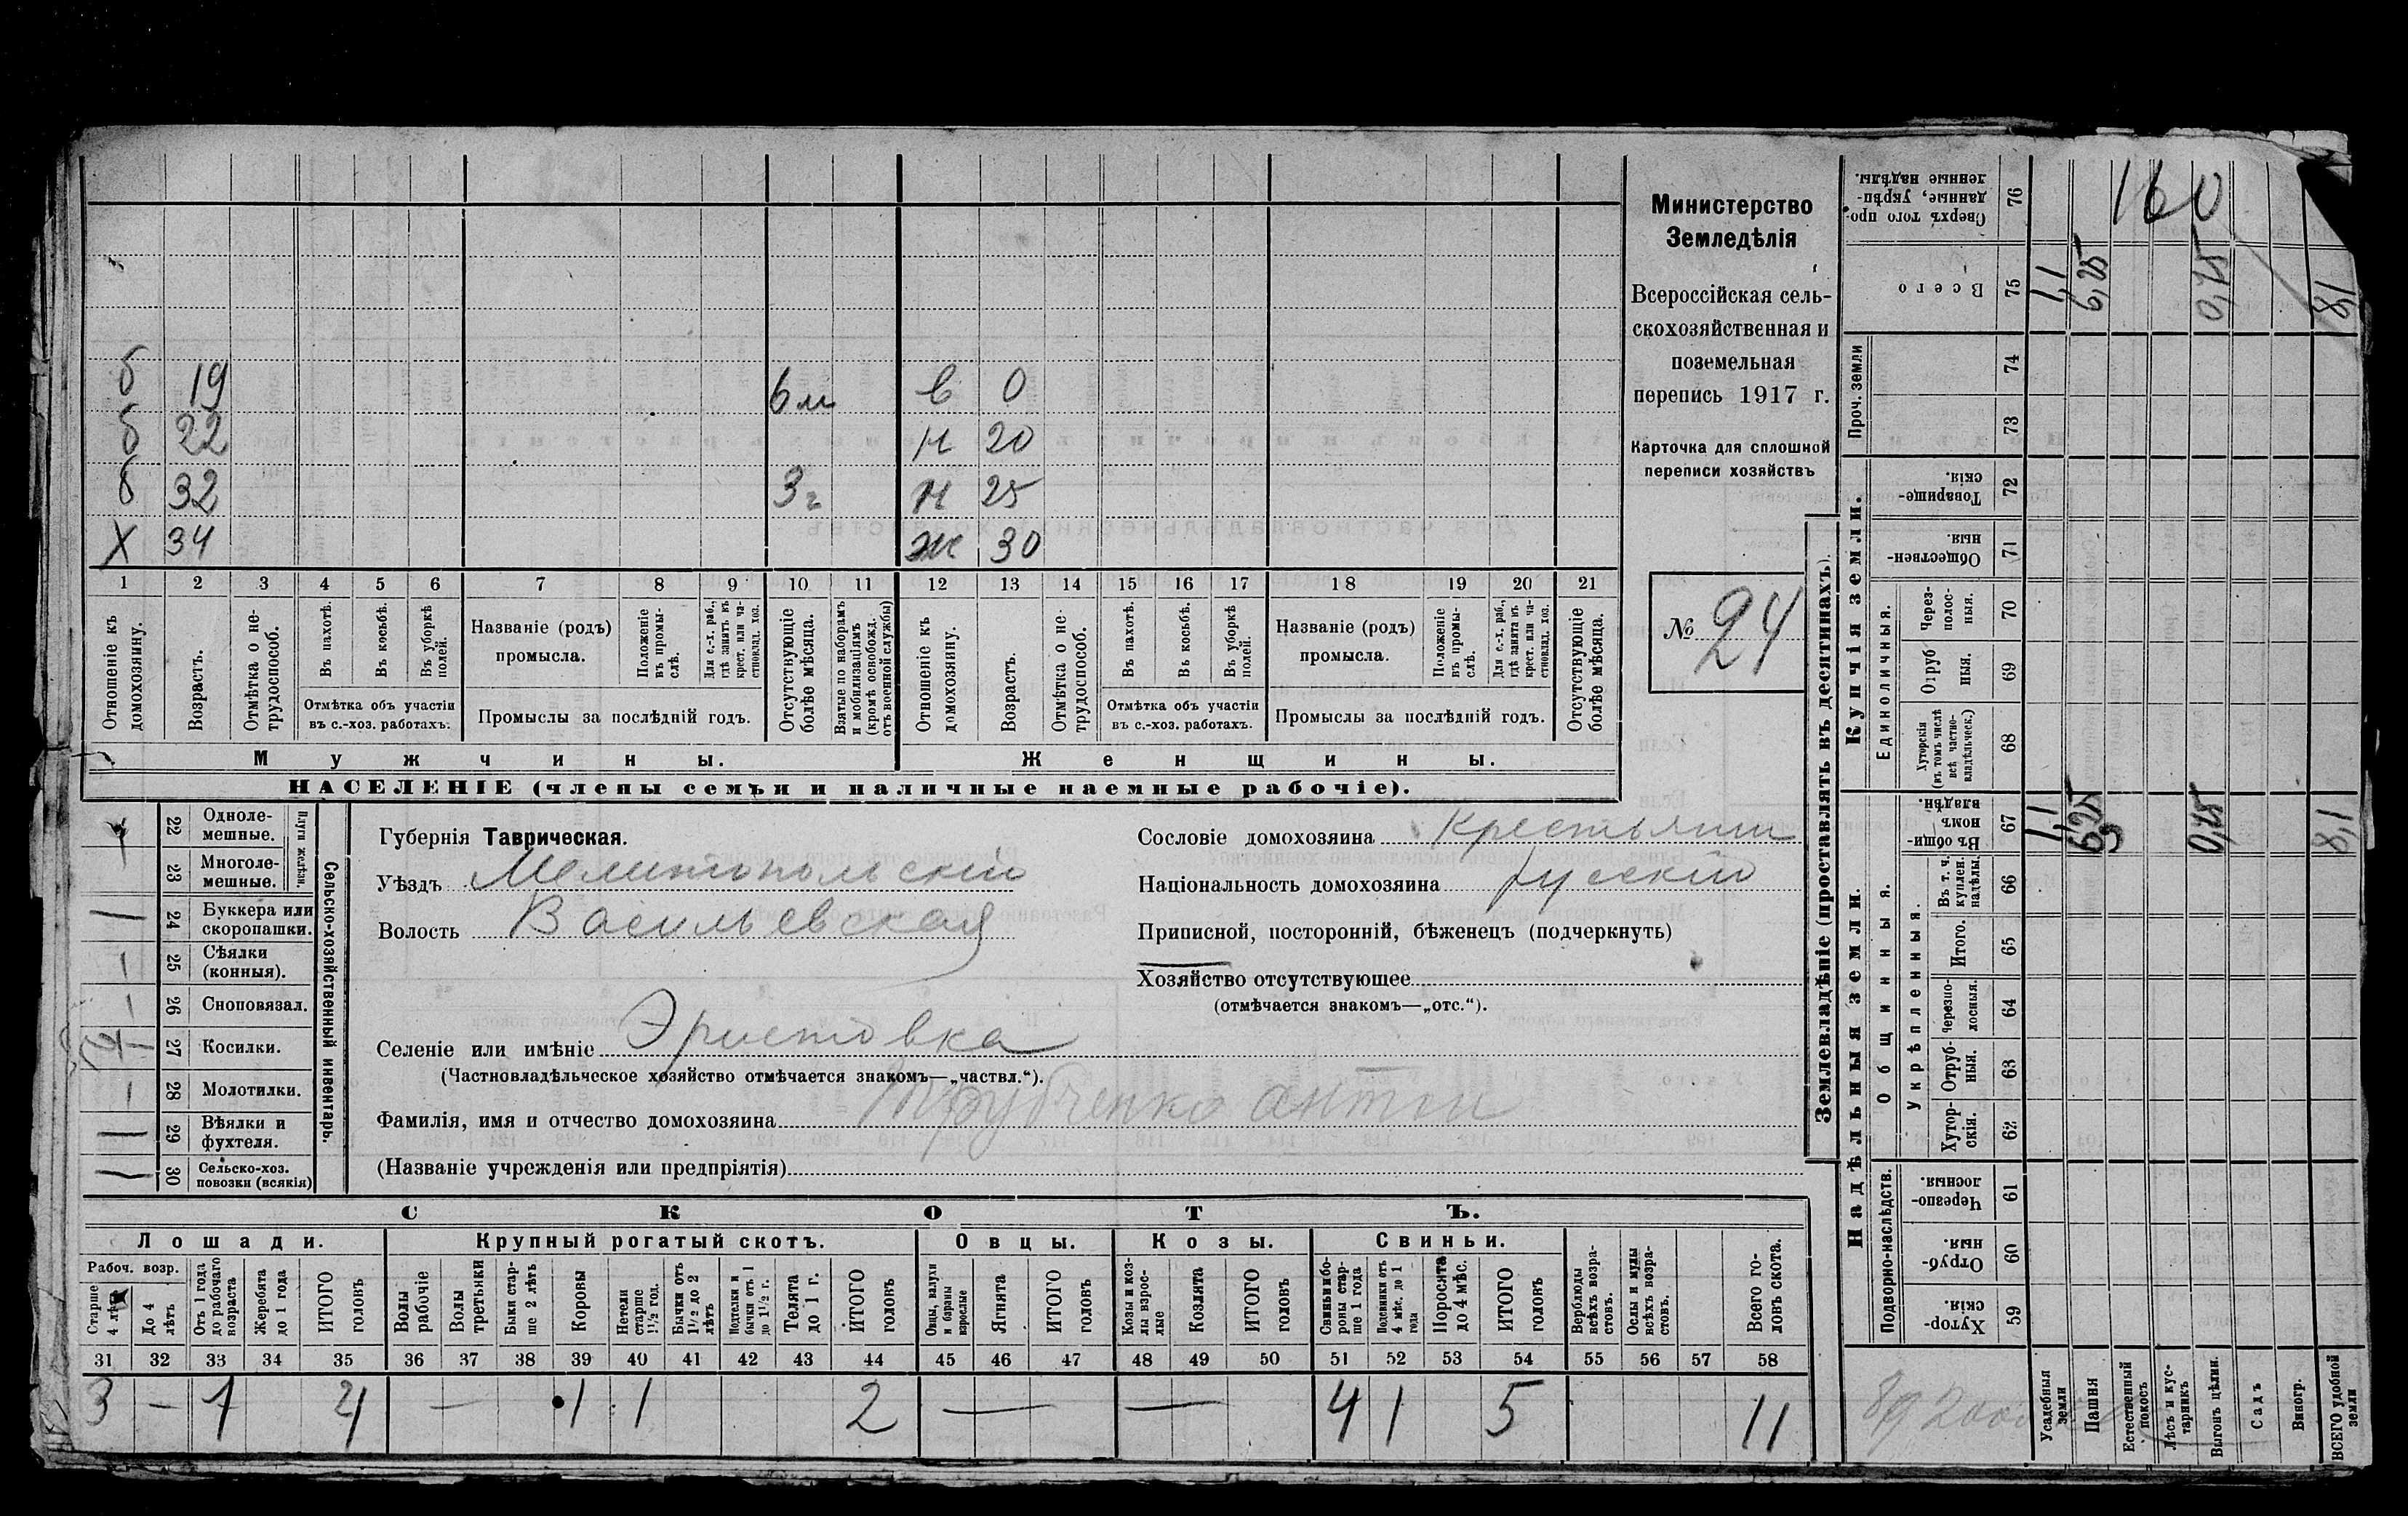 б 19 6 м в 0
б 22 н 20
б 32 3 г н 25
Х 34 ж 30
1 2 3 4 5 6 7 8 9 10 11 12 13 14 15 16 17 18 19 20 21
Отношеніе къ домохозяину.
Возрастъ.
Отмѣтка о не-
трудоспособ.
Въ пахотѣ.
Въ косьбѣ.
Въ уборкѣ полей.
Отмѣтка объ участіи
въ с.-хоз. работахъ.
Названіе (родъ)
промысла.
Положеніе въ промы-
слѣ.
Для с.-х. раб., гдѣ занятъ въ крест. или ча-
стновлад. хоз.
Промыслы за послѣдній годъ.
Отсутствующіе болѣе мѣсяца.
Взятые по наборамъ и мобилизаціямъ (кромѣ освобожд. отъ военной службы)
Отношеніе къ домохозяину.
Возрастъ.
Отмѣтка о не-
трудоспособ.
Въ пахотѣ.
Въ косьбѣ.
Въ уборкѣ полей.
Отмѣтка объ участіи
въ с.-хоз. работахъ.
Названіе (родъ)
промысла.
Положеніе въ промы-
слѣ.
Для с.-х. раб., гдѣ занята въ крест. или ча-
стновлад. хоз.
Промыслы за послѣдній годъ.
Отсутствующіе болѣе мѣсяца.
Мужчины.
Женщины.
НАСЕЛЕНІЕ (члены семьи и наличные наемные рабочіе).
Министерство
Земледѣлія
Всероссійская сель-
скохозяйственная и
поземельная
перепись 1917 г.
Карточка для сплошной
переписи хозяйствъ
№ 24
22 Одноле-
мешные.
23 Многоле-
мешные.
Плуги желѣзн.
24 Буккера или
скоропашки.
25 Сѣялки
(конныя).
26 Сноповязал.
27 Косилки.
28 Молотилки.
29 Вѣялки и
фухтеля.
30 Сельско-хоз.
повозки (всякія)
Сельско-хозяйственный инвентарь.
Губернія Таврическая.
Уѣздъ Мелитопольскій
Волость Васильевская
Сословіе домохозяина крестьянин
Національность домохозяина русскій
Приписной, посторонній, бѣженецъ (подчеркнуть)
Хозяйство отсутствующее
(отмѣчается знакомъ—„отс.“).
Селеніе или имѣніе Эристовка
(Частновладѣльческое хозяйство отмѣчается знакомъ—„частвл.“).
Фамилія, имя и отчество домохозяина Трубченко Антон
(Названіе учрежденія или предпріятія)
СКОТЪ.
Лошади. Крупный рогатый скотъ. Овцы. Козы. Свиньи.
Рабоч. возр.
Старше 4 лѣтъ
До 4 лѣтъ
Отъ 1 года до рабочаго возраста
Жеребята до 1 года
ИТОГО головъ
Волы рабочіе
Волы третьяки
Быки стар-
ше 2 лѣтъ
Коровы
Нетели старше 1½ год.
Бычки отъ 1½ до 2 лѣтъ
Подтелки и бычки отъ 1 до 1½ г.
Телята до 1 г.
ИТОГО головъ
Овцы, валухи и бараны взрослые
Ягнята
ИТОГО головъ
Козы и коз-
лы взрос-
лые
Козлята
ИТОГО головъ
Свиньи и бо-
ровы стар-
ше 1 года
Подсвинки отъ 4 мѣс. до 1 года
Поросята до 4 мѣс.
ИТОГО головъ
Верблюды всѣхъ возра-
стовъ.
Ослы и мулы всѣхъ возра-
стовъ.
Всего го-
ловъ скота.
31 32 33 34 35 36 37 38 39 40 41 42 43 44 45 46 47 48 49 50 51 52 53 54 55 56 57 58
3 — 1 4 — 1 1 2 — — 4 1 5 11
Землевладѣніе (проставлять въ десятинахъ).
Сверхъ того про-
данные, укрѣп-
ленные надѣлы. 76 160
Всего 75 1,1 6,25 0,75 8,1
Проч. земли
74
73
Купчія земли.
Товарище-
скія. 72
Обществен-
ныя. 71
Единоличныя.
Через-
полос-
ныя. 70
Отруб-
ныя. 69
Хуторскія (въ томъ числѣ всѣ частно-
владѣльческ.) 68
Надѣльныя земли.
Общинныя.
Въ общи-
номъ
владѣн. 67 1,1 6,25 0,75 8,1
Укрѣпленныя.
Въ т. ч. куплен. надѣлы. 66
Итого. 65
Черезпо-
лосныя. 64
Отруб-
ныя. 63
Хутор-
скія. 62
Подворно-наслѣдств.
Черезпо-
лосныя. 61
Отруб-
ныя. 60
Хутор-
скія. 59
Усадебныя земли
Пашня
Естественный покосъ
Лѣсъ и кус-
тарникъ
Выгонъ цѣлин.
Садъ
Виногр.
ВСЕГО удобной земли